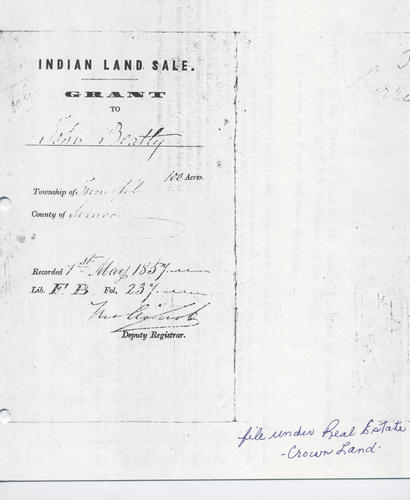 INDIAN LAND SALE.
GRANT
TO
John Beatty
100 Acres.
Township of Innisfil
County of Simcoe
Recorded 1st May 1857
Lib. F. B. Fol. 237
Deputy Registrar.
file under Real Estate
- Crown Land.